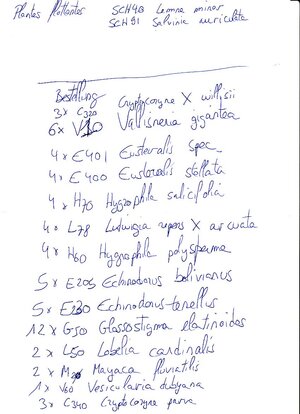 Plantes flottantes SCH40 Lemna minor
SCH51 Salvinia auriculata
Bestellung
3x C320 Cryptocoryne X willisii
6x V10 Vallisneria gigantea
4x E401 Eusteralis spec.
4x E400 Eusteralis stellata
4x H70 Hygrophila salicifolia
4x L78 Ludwigia repens X arcuata
4x H60 Hygrophila polysperma
5x E205 Echinodorus bolivianus
5x E230 Echinodorus tenellus
12x G50 Glossostigma elatinoides
2x L50 Lobelia cardinalis
2x M20 Mayaca fluviatilis
1x V60 Vesicularia dubyana
3x C340 Cryptocoryne parva